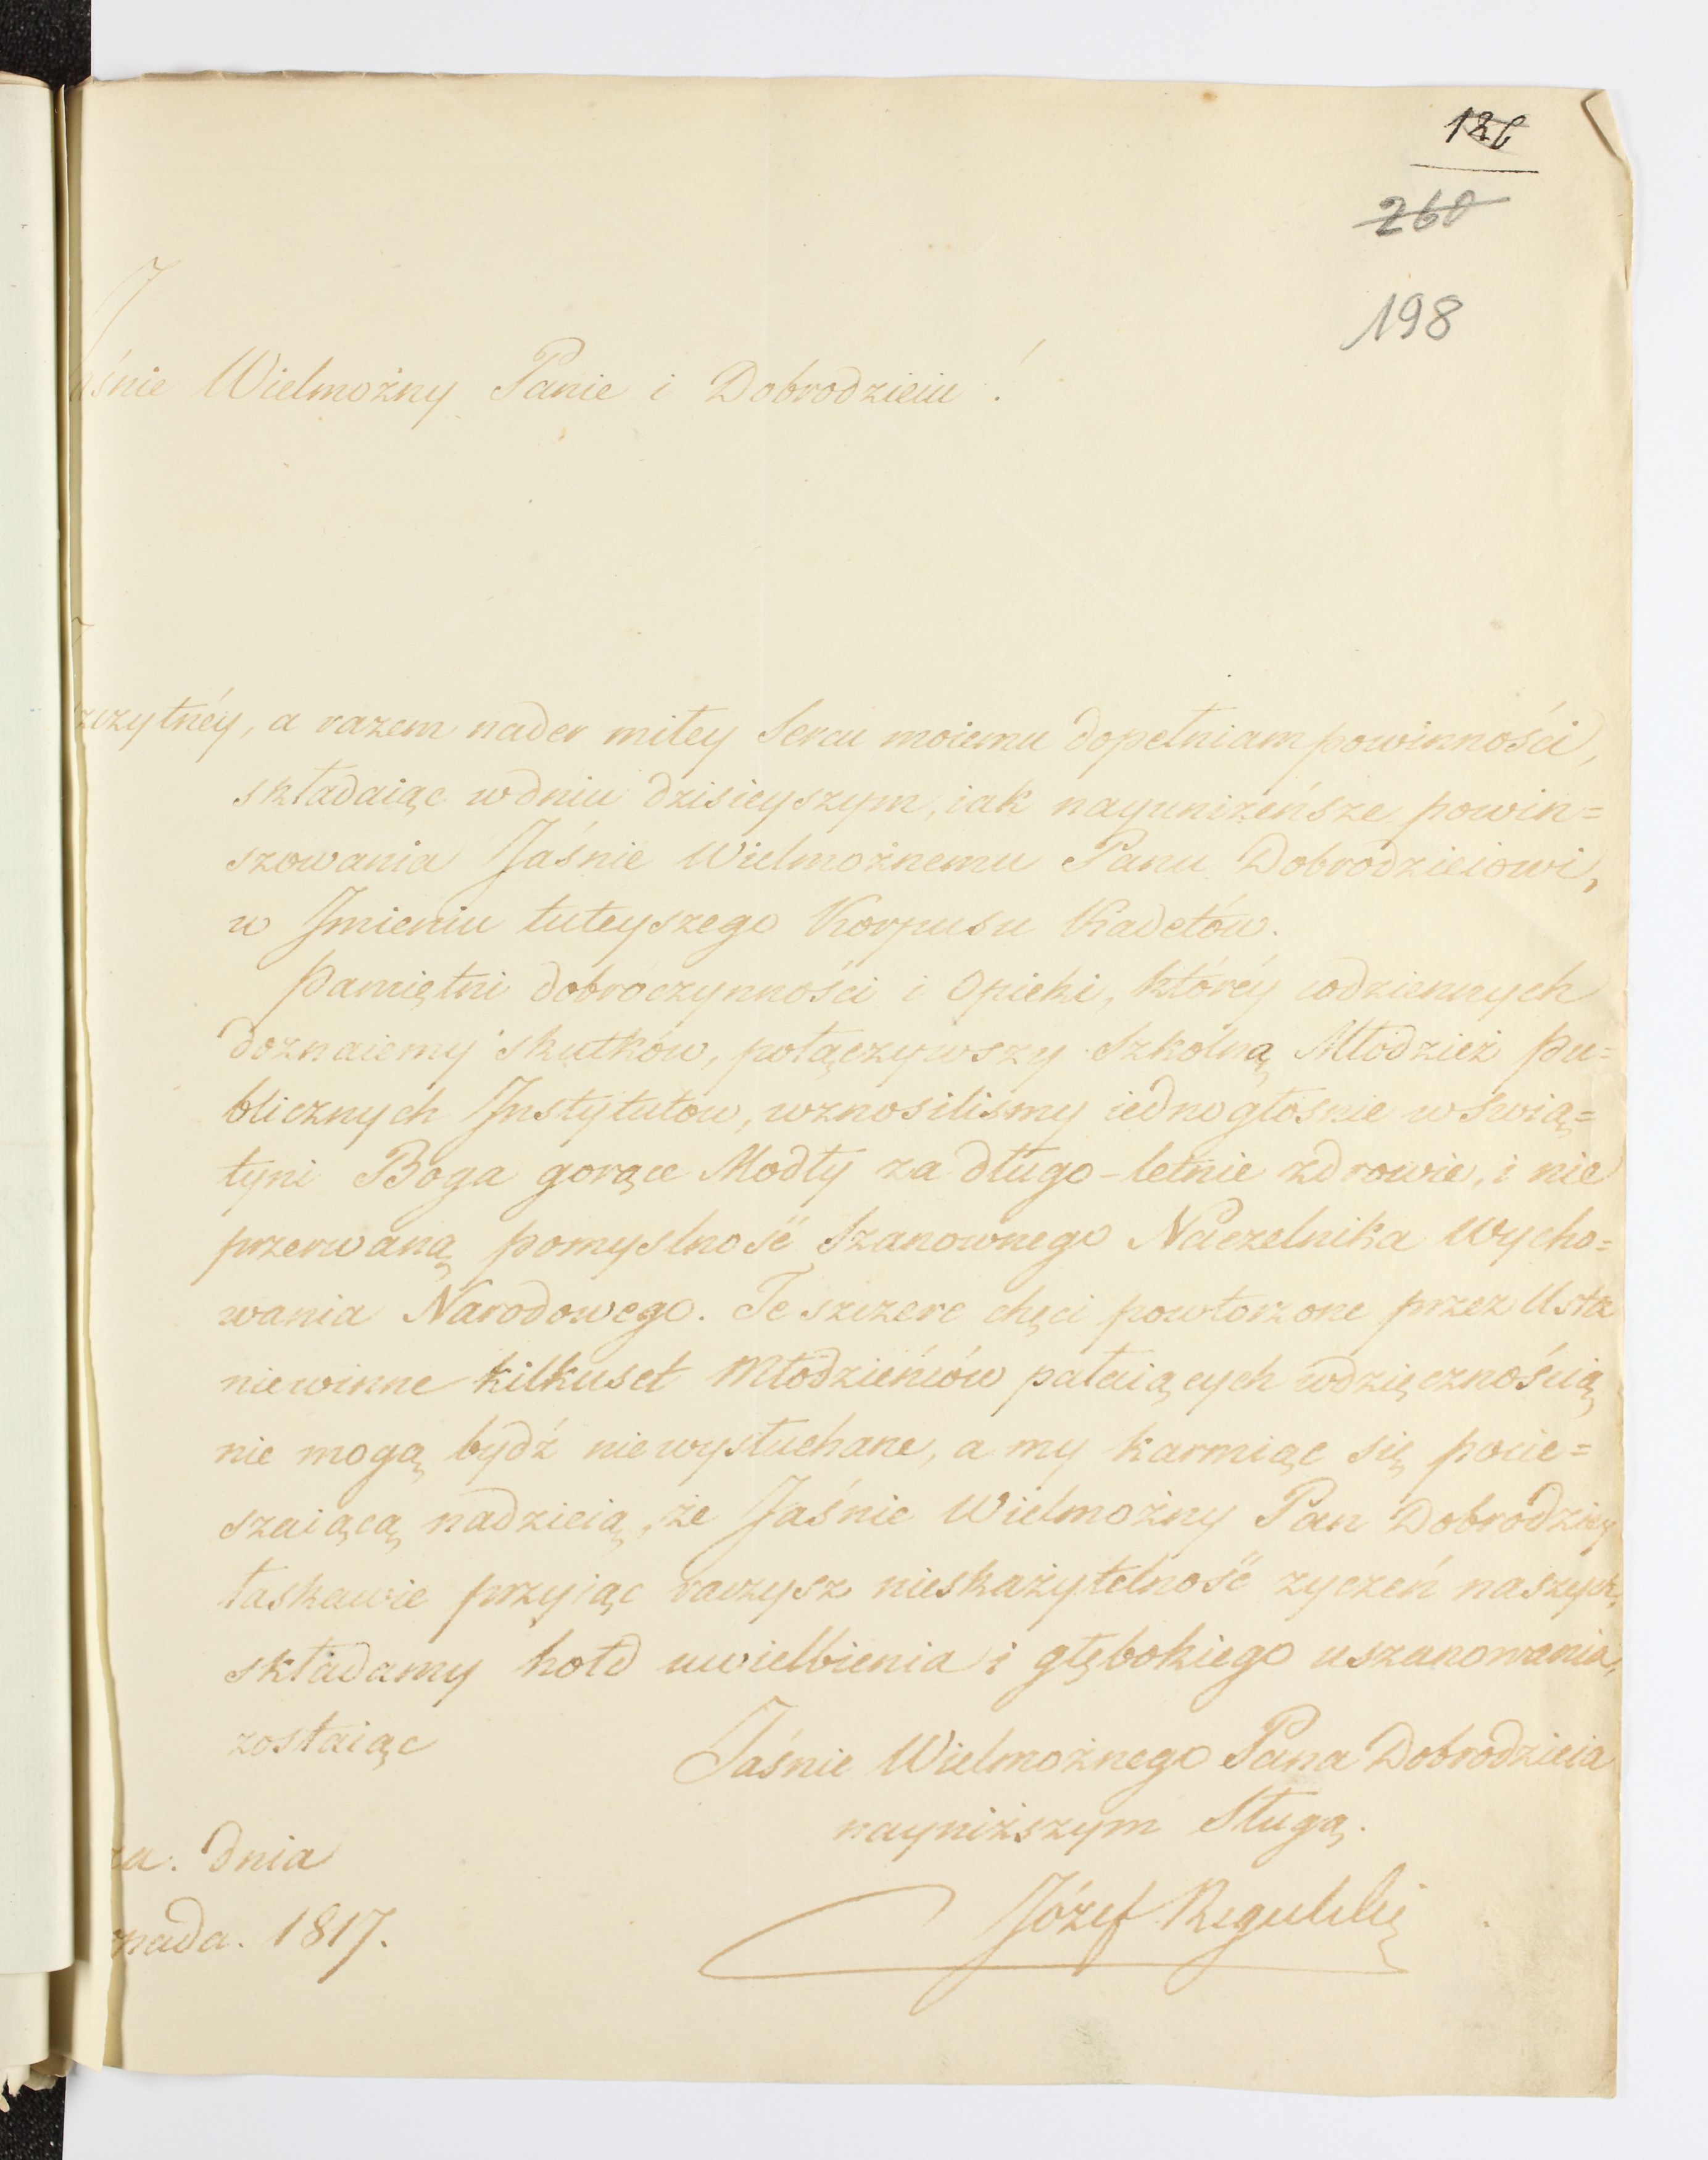 126
260
198
Jaśnie Wielmożny Panie i Dobrodzieiu!
zczytnéy, a razem nader miłey Sercu moiemu dopełniam powinności,
składaiąc w dniu dzisieyszym, iak nayuniżeńsze powin=
szowania Jaśnie Wielmożnemu Panu Dobrodzieiowi,
w Imieniu tuteyszego Korpusu Kadetów.
Pamiętni dobroczynności i Opieki, któréy codziennych
doznaiemy skutków, połączywszy Szkolną Młodzież Pu=
blicznych Instytutow, wznosilismy iednogłosnie w świą=
tyni Boga gorące Modły za długo-letnie zdrowie, i nie
przerwaną pomyslność Szanownego Naczelnika Wycho=
wania Narodowego. Te szczere chęci powtorzone przez Usta
niewinne kilkuset Młodzieńców pałaiących wdzięcznością
nie mogą bydź niewysłuchane, a my karmiąc się pocie=
szaiącą nadzieią, że Jaśnie Wielmożny Pan Dobrodziey
łaskawie przyiąc raczysz nieskażytelność zyczeń naszych,
składamy hołd uwielbienia i głębokiego uszanowania,
zostaiąc
Jaśnie Wielmożnego Pana Dobrodzieia
nayniższym Sługą.
za. dnia
pada. 1817.
Józef Regulski